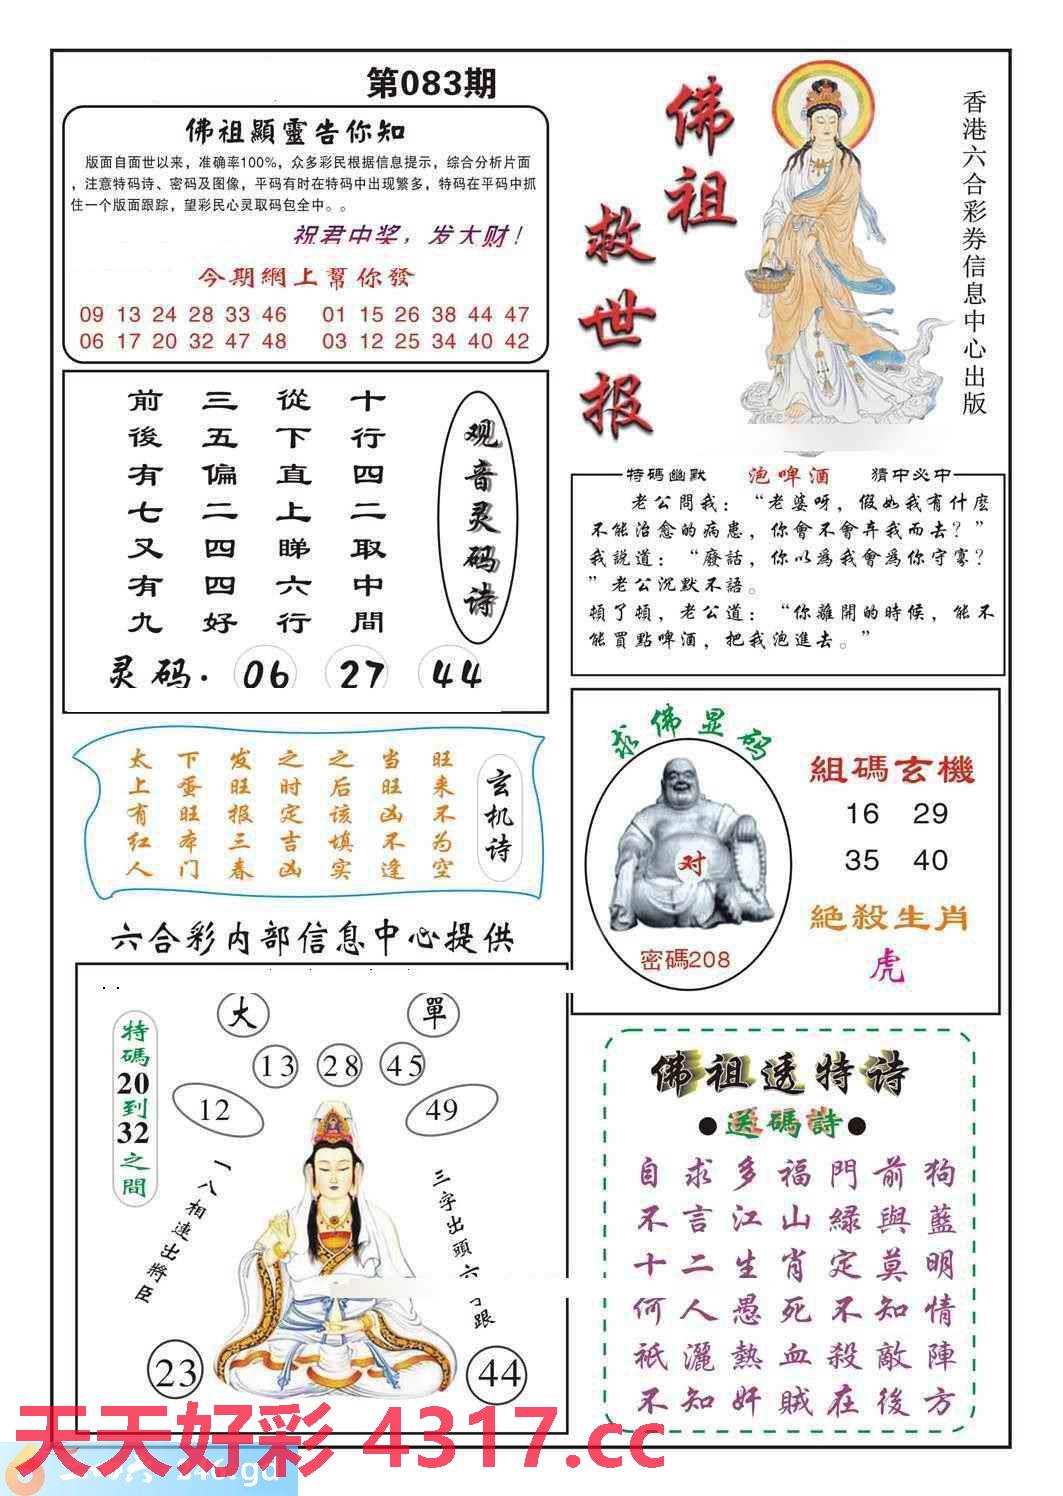 第083期
佛祖顯靈告你知
版面自面世以来，准确率100%，众多彩民根据信息提示，综合分析片面
，注意特码诗、密码及图像，平码有时在特码中出现繁多，特码在平码中抓
住一个版面跟踪，望彩民心灵取码包全中。。
祝君中奖，发大财！
今期網上幫你發
09 13 24 28 33 46 01 15 26 38 44 47
06 17 20 32 47 48 03 12 25 34 40 42
佛祖
救世报
香港六合彩券信息中心出版
观音灵码诗
十行四二取中間
從下直上睇六行
三五偏二四四好
前後有七又有九
灵码. 06 27 44
特碼幽默 泡啤酒 猜中必中
老公問我：“老婆呀，假如我有什麽
不能治愈的病患，你會不會弃我而去？”
我説道：“廢話，你以爲我會爲你守寡？
”老公沉默不語。
頓了頓，老公道：“你離開的時候，能不
能買點啤酒，把我泡進去。”
玄机诗
旺来不为空
当旺凶不逢
之后该填实
之时定吉凶
发旺报三春
下蛋旺本门
太上有红人
求佛显码
对
密碼208
組碼玄機
16 29
35 40
絕殺生肖
虎
六合彩内部信息中心提供
特碼20到32之間
大 單
13 28 45
12 49
一八相連出將臣
三字出頭六
跟
23 44
佛祖透特诗
●送碼詩●
自求多福門前狗
不言江山緑與藍
十二生肖定莫明
何人愚死不知情
祇灑熱血殺敵陣
不知奸賊在後方
天天好彩 4317.cc
246.gd